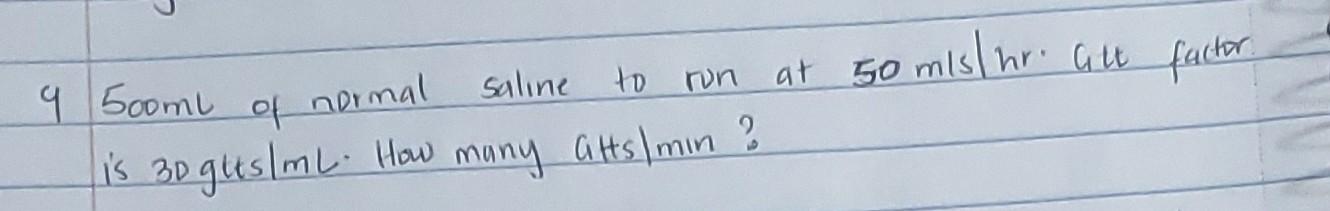 9 500mL of normal saline to run at 50 mls/hr. Gtt factor
is 30 gtts/mL. How many Gtts/min?